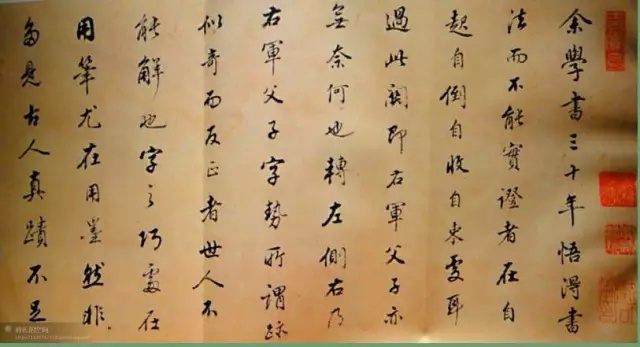 余學書三十年悟得書
法而不能實證者在自
起自倒自收自束處耳
過此關即右軍父子亦
無奈何也轉左側右乃
右軍父子字勢所謂跡
似奇而反正者世人不
能解也字之巧處在
用筆尤在用墨然非
多見古人真蹟不足